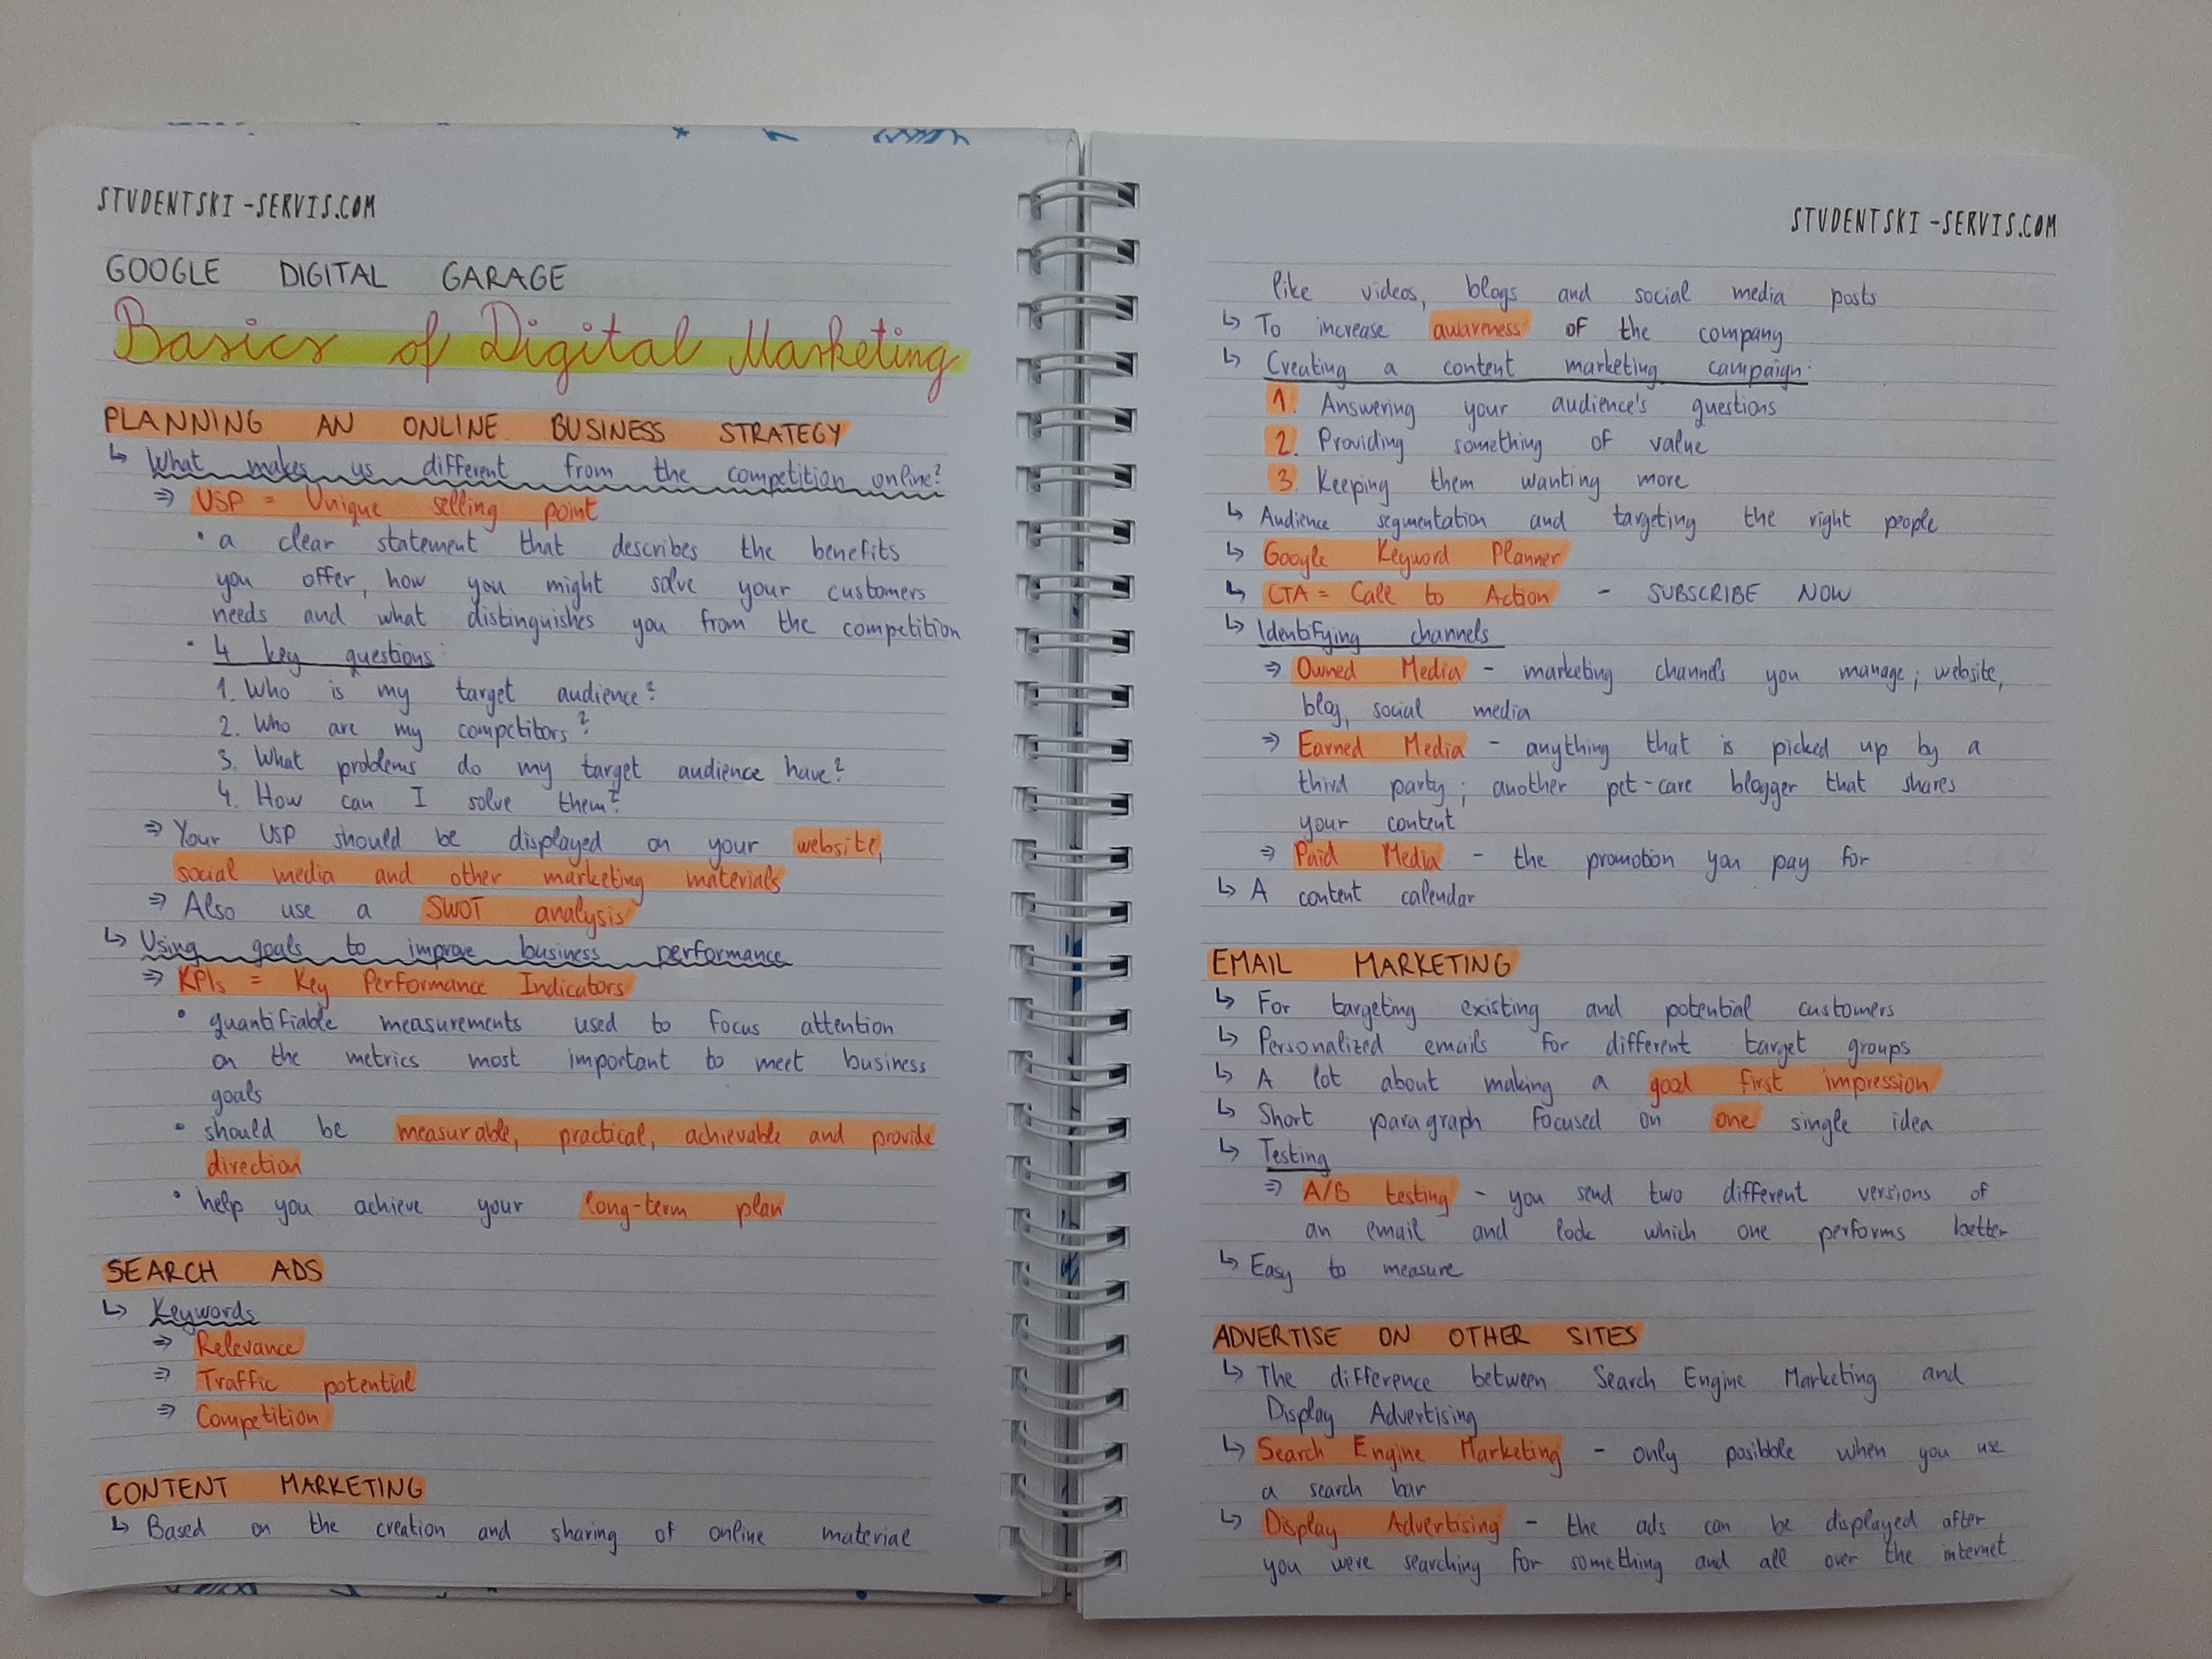 STUDENTSKI-SERVIS.COM
GOOGLE DIGITAL GARAGE
Basics of Digital Marketing
PLANNING AN ONLINE BUSINESS STRATEGY
↳ What makes us different from the competition online?
⇒ USP = Unique selling point
• a clear statement that describes the benefits
you offer, how you might solve your customers
needs and what distinguishes you from the competition
• 4 key questions:
1. Who is my target audience?
2. Who are my competitors?
3. What problems do my target audience have?
4. How can I solve them?
⇒ Your USP should be displayed on your website,
social media and other marketing materials
⇒ Also use a SWOT analysis
↳ Using goals to improve business performance
⇒ KPIs = Key Performance Indicators
• quantifiable measurements used to focus attention
on the metrics most important to meet business
goals
• should be measurable, practical, achievable and provide
direction
• help you achieve your long-term plan
SEARCH ADS
↳ Keywords
⇒ Relevance
⇒ Traffic potential
⇒ Competition
CONTENT MARKETING
↳ Based on the creation and sharing of online material
STUDENTSKI-SERVIS.COM
like videos, blogs and social media posts
↳ To increase awareness of the company
↳ Creating a content marketing campaign:
1. Answering your audience's questions
2. Providing something of value
3. Keeping them wanting more
↳ Audience segmentation and targeting the right people
↳ Google Keyword Planner
↳ CTA = Call to Action - SUBSCRIBE NOW
↳ Identifying channels
⇒ Owned Media - marketing channels you manage; website,
blog, social media
⇒ Earned Media - anything that is picked up by a
third party; another pet-care blogger that shares
your content
⇒ Paid Media - the promotion you pay for
↳ A content calendar
EMAIL MARKETING
↳ For targeting existing and potential customers
↳ Personalized emails for different target groups
↳ A lot about making a good first impression
↳ Short paragraph focused on one single idea
↳ Testing
⇒ A/B testing - you send two different versions of
an email and look which one performs better
↳ Easy to measure
ADVERTISE ON OTHER SITES
↳ The difference between Search Engine Marketing and
Display Advertising
↳ Search Engine Marketing - only posibble when you use
a search bar
↳ Display Advertising - the ads can be displayed after
you were searching for something and all over the internet